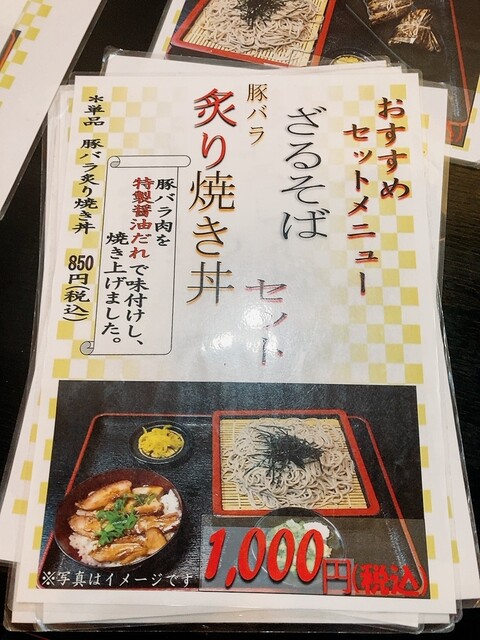 おすすめ
セットメニュー
ざるそば
豚バラ
炙り焼き丼
セット
豚バラ肉を
特製醤油だれで味付けし、
焼き上げました。
※単品 豚バラ炙り焼き丼 850円(税込)
1,000円(税込)
※写真はイメージです